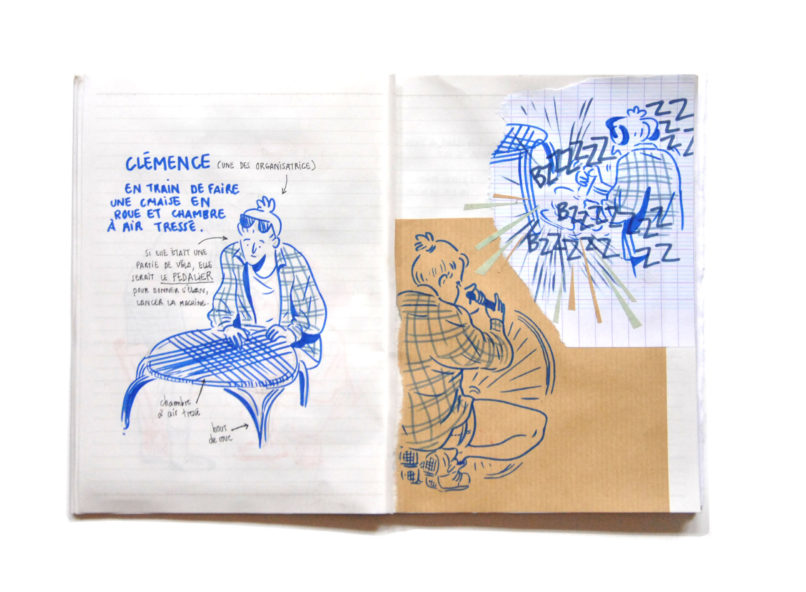 CLÉMENCE (UNE DES ORGANISATRICE)
EN TRAIN DE FAIRE
UNE CHAISE EN
ROUE ET CHAMBRE
À AIR TRESSÉ.
SI ELLE ÉTAIT UNE
PARTIE DE VÉLO, ELLE
SERAIT LE PEDALIER
POUR DONNER L'ÉLAN,
LANCER LA MACHINE.
chambre
à air tressé
bouts
de roue
ZZ
ZZ
ZZ
ZZ
BZZZZZZ
BZZZZZ
ZZ
BZZZZZ
ZZ
ZZ